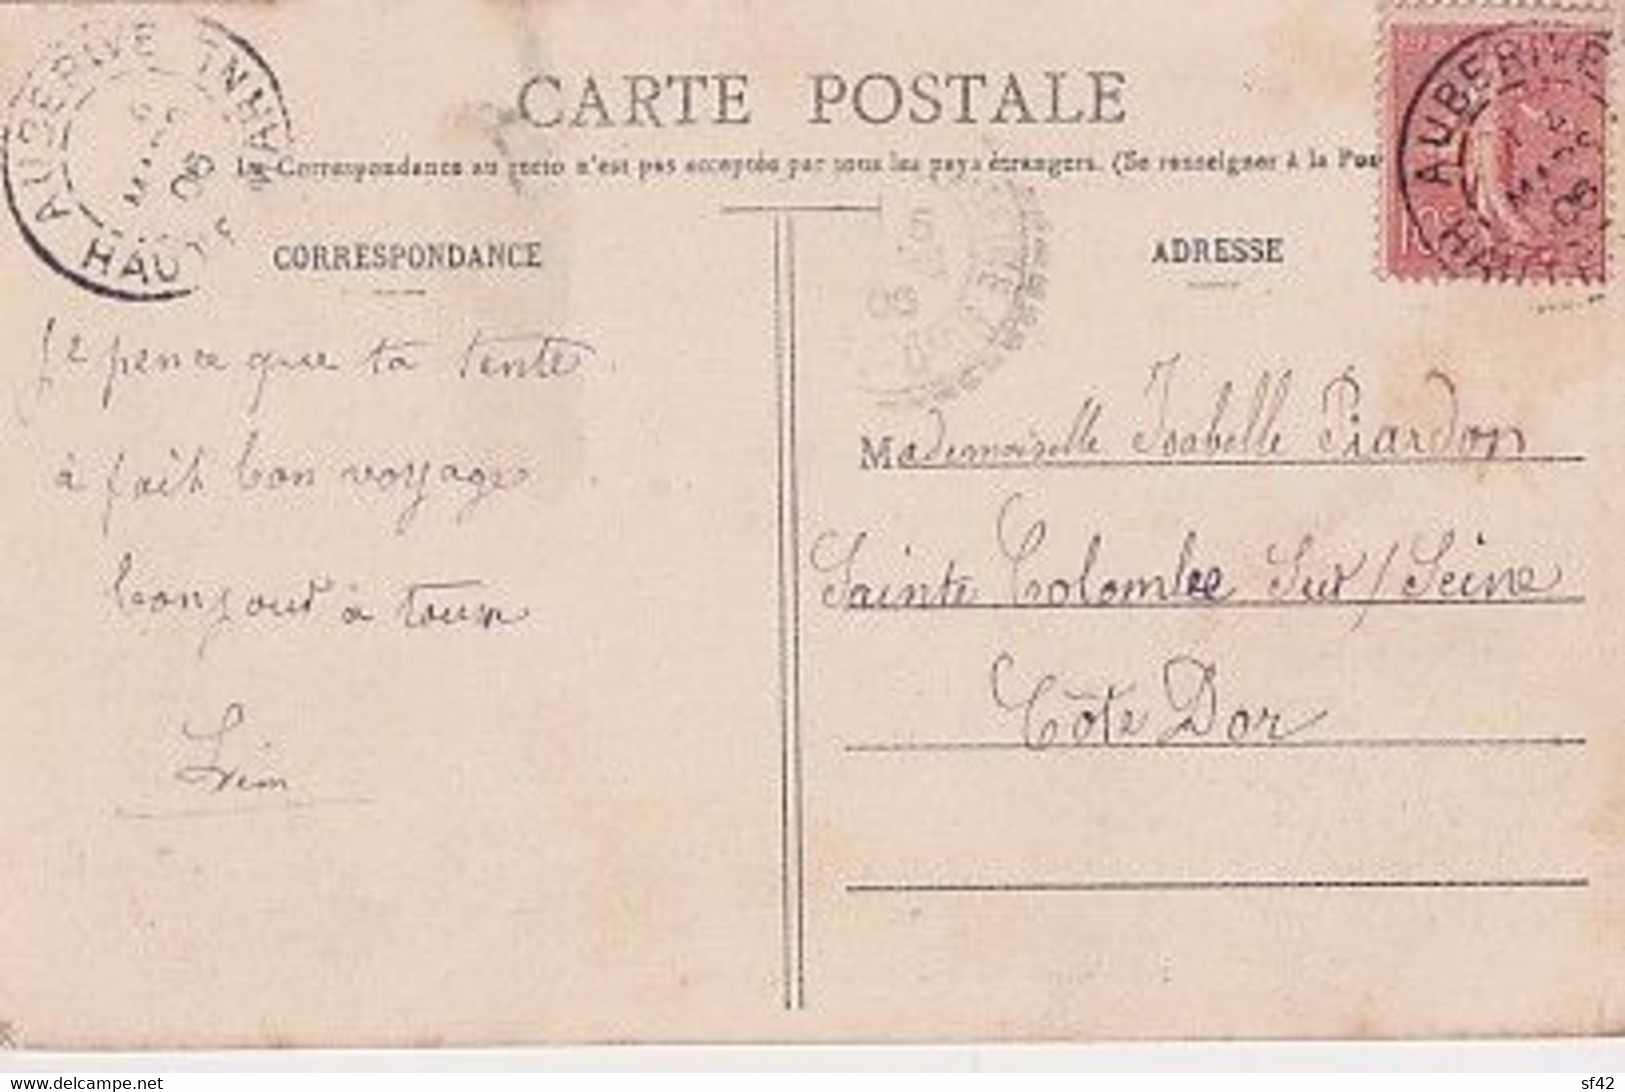 CARTE POSTALE
La Correspondance au recto n'est pas acceptée par tous les pays étrangers. (Se renseigner à la Pos
CORRESPONDANCE
ADRESSE
AUBERIVE
HAUTE MARNE
MARS
06
AUBERIVE
HAUTE
MARS
06
Je pence que ta tente
à fait bon voyage
bonjour à tous
Mademoiselle Isabelle Piardon
Sainte Colombe Sur/Seine
Côte Dor
delcampe.net
sf42